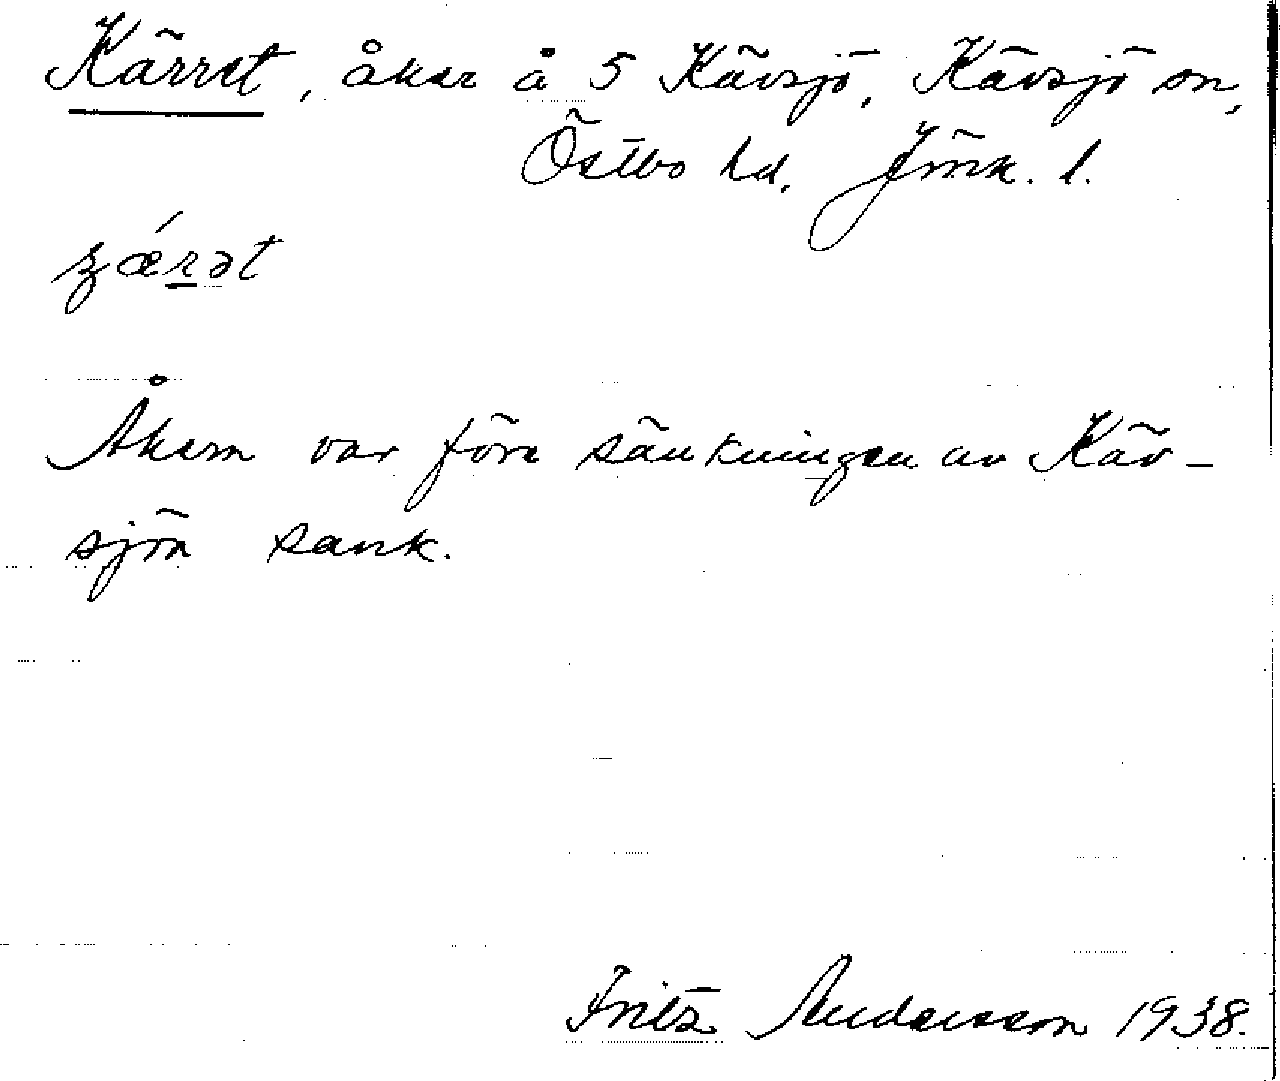 Kärret, åker å 5 Kävsjö, Kävsjö sn,
Östbo hd, Jönk. l.
ʒǽrət
Åkern var före sänkningen av Käv-
sjön sank.
Fritz Andersson 1938.